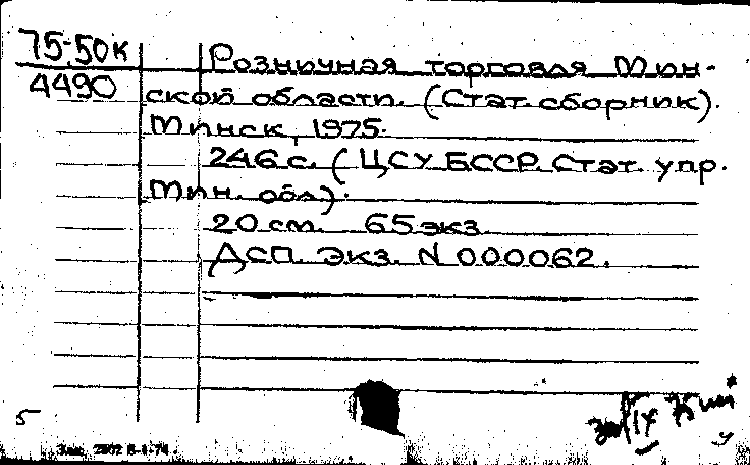 75-50к
4490
Розничная торговля Мин-
ской области. (Стат. сборник).
Минск, 1975.
246 с. (ЦСУ БССР. Стат. упр.
Мин. обл).
20 см. 65 экз.
ДСП. Экз. N 000062.
5